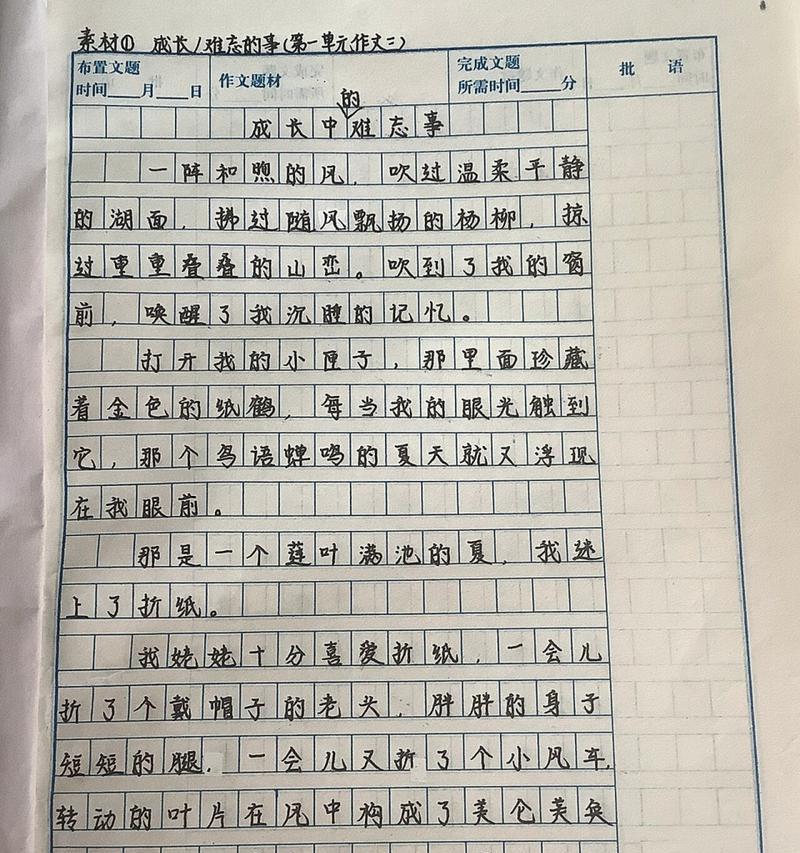 素材① 成长/难忘的事(第一单元作文二)
布置文题 时间____月____日 作文题材 完成文题 所需时间____分 批 语
的
成长中难忘事
一阵和煦的风,吹过温柔平静
的湖面,拂过随风飘扬的杨柳,掠
过重重叠叠的山峦。吹到了我的窗
前,唤醒了我沉睡的记忆。
打开我的小匣子,那里面珍藏
着金色的纸鹤,每当我的眼光触到
它,那个鸟语蝉鸣的夏天就又浮现
在我眼前。
那是一个莲叶满池的夏,我迷
上了折纸。
我姥姥十分喜爱折纸,一会儿
折了个戴帽子的老头,胖胖的身子
短短的腿,一会儿又折了个小风车,
转动的叶片在风中构成了美仑美奂